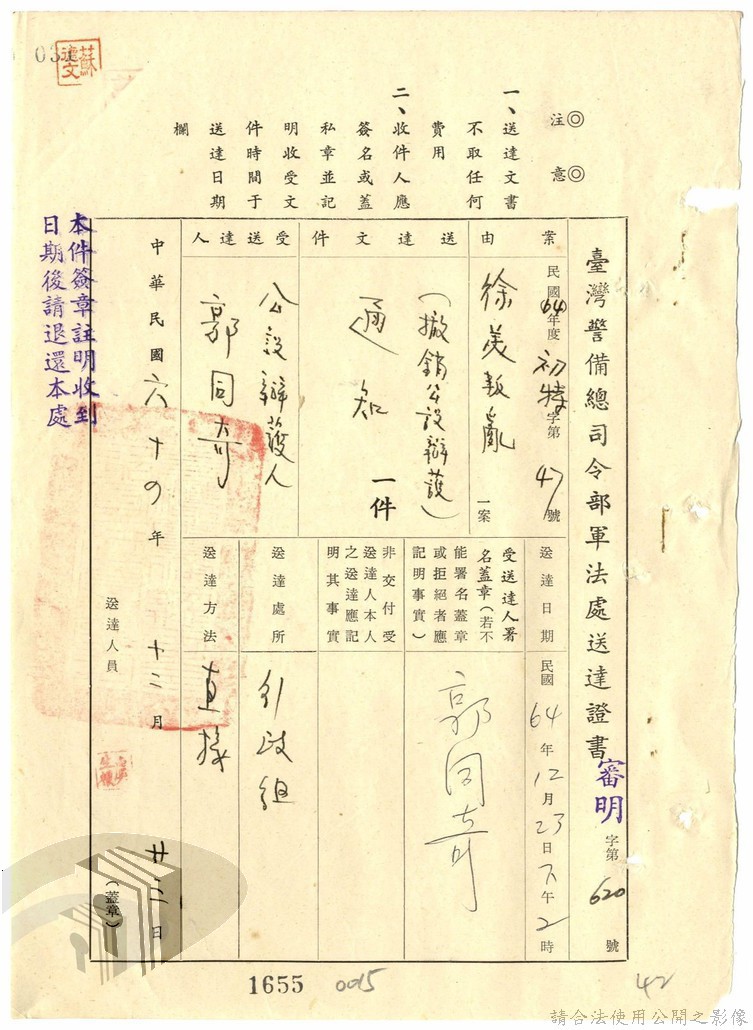 臺灣警備總司令部軍法處送達證書
審明字第620號
◎注意◎
一、送達文書不取任何費用
二、收件人應簽名或蓋私章並記明收受文件時間于送達日期欄
案由
民國64年度初特字第47號
徐美叛亂一案
送達文件
(撤銷公設辯護)
通知
一件
受送達人
公設辯護人
郭同奇
送達日期
民國64年12月23日下午2時
受送達人署名蓋章(若不能署名蓋章或拒絕者應記明事實)
郭同奇
非交付受送達人本人之送達應記明其事實
送達處所
行政組
送達方法
直接
中華民國六十四年十二月廿三日
送達人員
(蓋章)
本件簽章註明收到
日期後請退還本處
蘇達文
03
1655
0015
42
請合法使用公開之影像